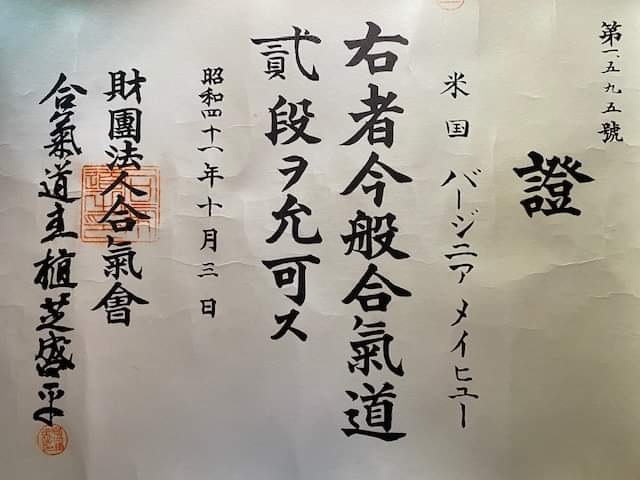 第一五九五號
證
米国 バージニア メイヒュー
右者今般合氣道
貳段ヲ允可ス
昭和四十一年十月三日
財團法人合氣會
合氣道主植芝盛平